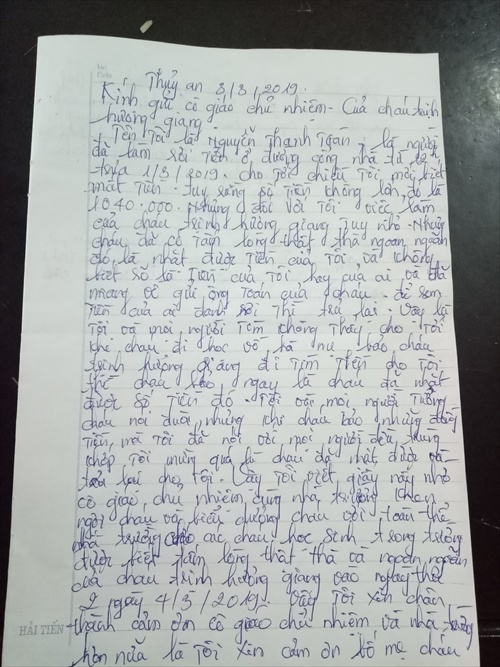 Thủy an 3/3/2019.
Kính gửi cô giáo chủ nhiệm - Của cháu trịnh
hương giang
Tên Tôi là Nguyễn Thanh Toán, là người
đã làm rơi Tiền ở đường cổng nhà từ
trưa 1/3/2019. cho Tới chiều Tôi mới biết
mất Tiền - tuy rằng số Tiền không lớn, đó là
1040.000. Nhưng đối với Tôi việc làm
của cháu trịnh hương giang Tuy nhỏ - Nhưng
cháu đã có Tấm lòng thật thà ngoan ngoãn
đó, là nhặt được Tiền của Tôi và không
biết số là Tiền của Tôi hay của ai và đã
mang về gửi ông Toán của cháu. để xem
Tiền của ai đánh rơi Thì trả lại. Vậy là
Tôi và mọi người Tìm không Thấy cho Tới
khi cháu đi học về bà nó bảo cháu
trịnh hương giang đi Tìm Tiền cho Tôi
thì cháu bảo ngay là cháu đã nhặt
được số Tiền đó. Tôi và mọi người Tưởng
cháu nói đùa, nhưng khi cháu bảo những
Tiền, mà Tôi đã nói với mọi người đều trùng
khớp Tôi mừng quá là cháu đã nhặt được và
trao lại cho Tôi. Vậy Tôi viết giấy này nhờ
cô giáo, chủ nhiệm cùng nhà trường khen
ngợi cháu và biểu dương cháu với toàn thể
nhà trường các cháu học sinh trong trường
được biết tấm lòng thật thà và ngoan ngoãn
của cháu trịnh hương giang vào ngày thứ
2 ngày 4/3/2019. Vậy Tôi xin chân
HẢI TIẾN
thành cảm ơn cô giáo chủ nhiệm và nhà trường
hơn nữa là Tôi xin cảm ơn bố mẹ cháu